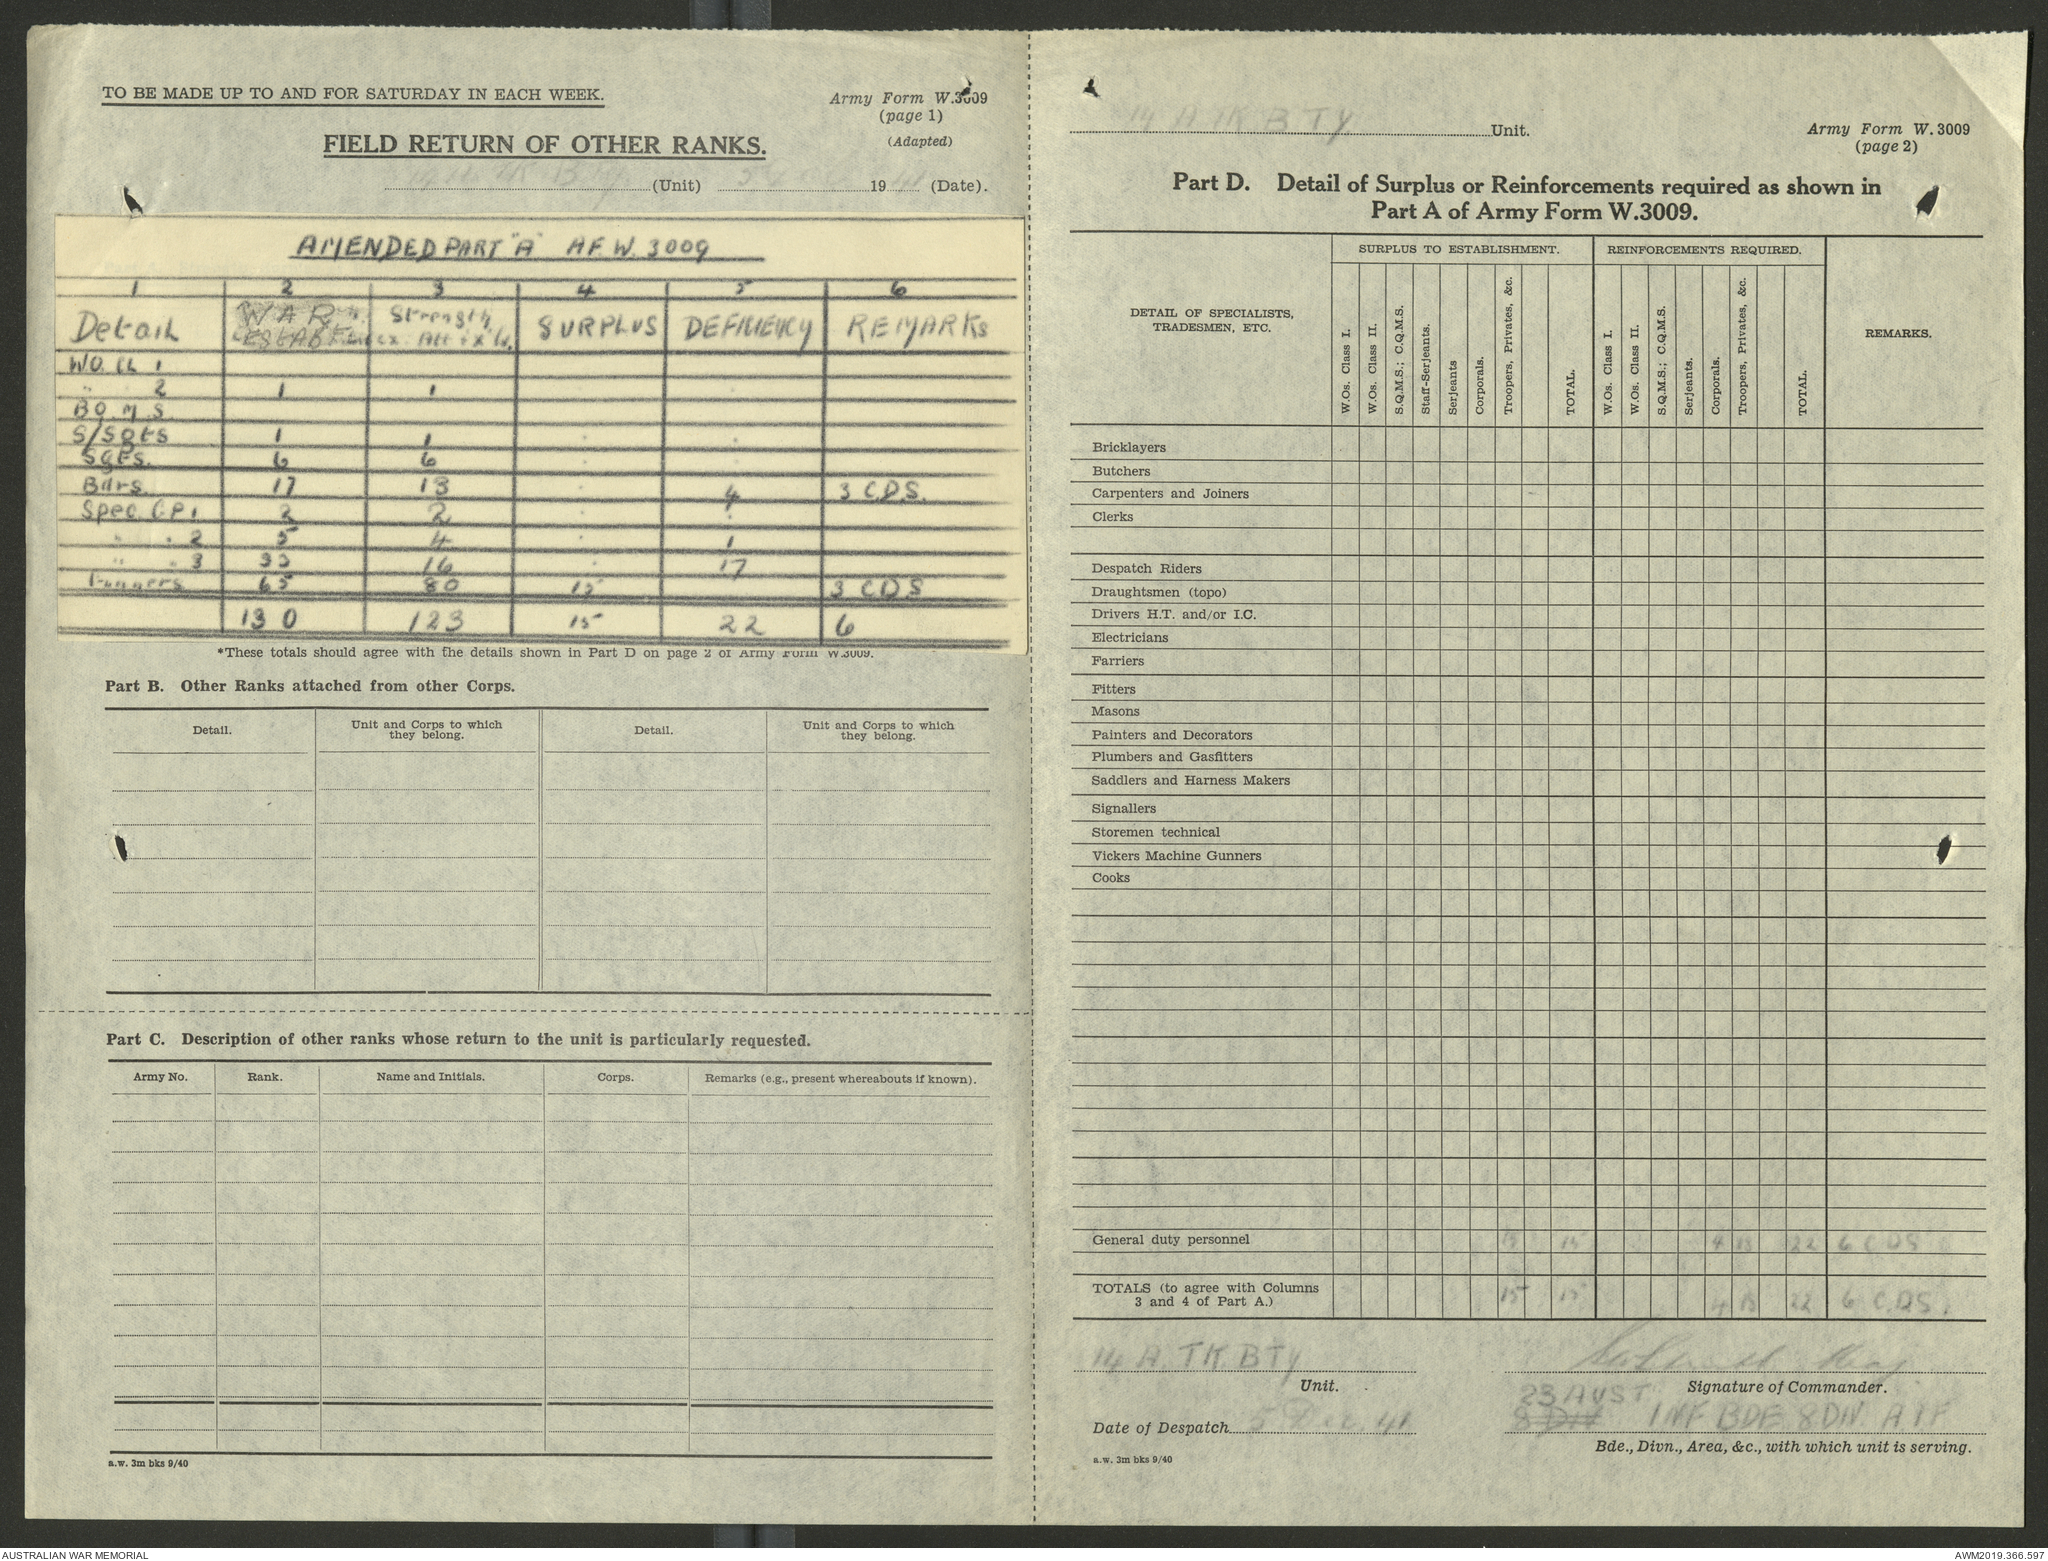 TO BE MADE UP TO AND FOR SATURDAY IN EACH WEEK.
Army Form W.3009
(page 1)
(Adapted)
FIELD RETURN OF OTHER RANKS.
(Unit) 5 1941 (Date).
AMENDED PART "A" A.F.W. 3009
1 2 3 4 5 6
Detail WAR ESTAB Strength SURPLUS DEFICIENCY REMARKS
WO. CL 1
" 2 1 1
B.Q.M.S.
S/Sgts 1 1
Sgts. 6 6
Bdrs. 17 13 4 3 C.D.S.
Spec GP. 1 2 2
" " 2 5 4 1
" " 3 33 16 17
Gunners 65 80 15 3 CDS
130 123 15 22 6
*These totals should agree with the details shown in Part D on page 2 of Army Form W.3009.
Part B. Other Ranks attached from other Corps.
Detail. Unit and Corps to which they belong. Detail. Unit and Corps to which they belong.
Part C. Description of other ranks whose return to the unit is particularly requested.
Army No. Rank. Name and Initials. Corps. Remarks (e.g., present whereabouts if known).
a.w. 3m bks 9/40
14 A TK BTY Unit.
Army Form W. 3009
(page 2)
Part D. Detail of Surplus or Reinforcements required as shown in
Part A of Army Form W.3009.
DETAIL OF SPECIALISTS, TRADESMEN, ETC.
SURPLUS TO ESTABLISHMENT. REINFORCEMENTS REQUIRED. REMARKS.
W.Os. Class I. W.Os. Class II. S.Q.M.S.; C.Q.M.S. Staff-Serjeants. Serjeants Corporals. Troopers, Privates, &c. TOTAL. W.Os. Class I. W.Os. Class II. S.Q.M.S.; C.Q.M.S. Serjeants. Corporals. Troopers, Privates, &c. TOTAL.
Bricklayers
Butchers
Carpenters and Joiners
Clerks
Despatch Riders
Draughtsmen (topo)
Drivers H.T. and/or I.C.
Electricians
Farriers
Fitters
Masons
Painters and Decorators
Plumbers and Gasfitters
Saddlers and Harness Makers
Signallers
Storemen technical
Vickers Machine Gunners
Cooks
General duty personnel 15 15 4 18 22 6 CDS
TOTALS (to agree with Columns
3 and 4 of Part A.) 15 15 4 18 22 6 C.D.S.
14 A. TK BTY
Unit.
Signature of Commander.
23 AUST
Date of Despatch 5 Dec. 41
INF BDE 8 DIV A I F
Bde., Divn., Area, &c., with which unit is serving.
a.w. 3m bks 9/40
AUSTRALIAN WAR MEMORIAL
AWM2019.366.597